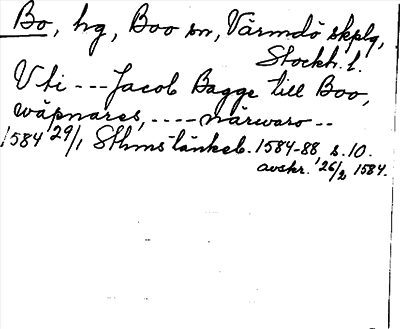 Bo, hg, Boo sn, Värmdö skplg,
Stockh. l.
Uti --- Jacob Bagge till Boo,
wäpnares, ---- närwaro --
1584 29/1 Sthms tänkeb. 1584-88 s. 10.
avskr. 26/2 1584.